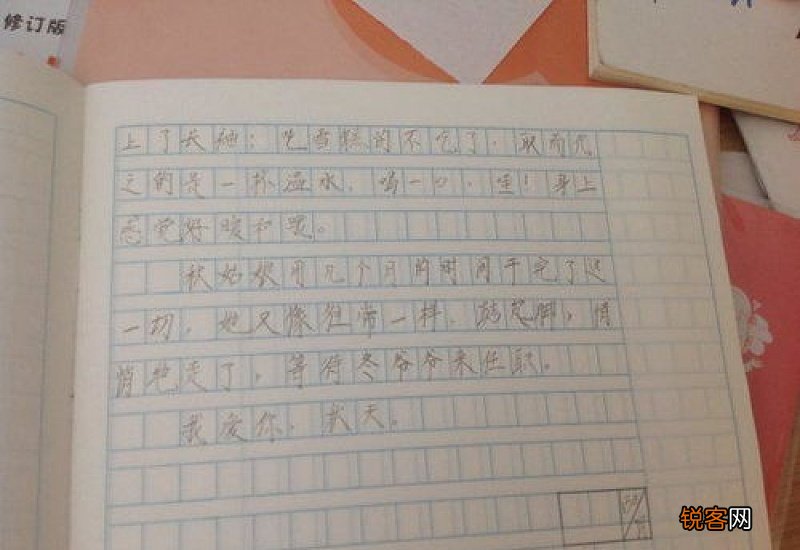 修订版
上了长袖；吃雪糕的不吃了，取而代
之的是一杯温水，喝一口，哇！身上
感觉好暖和哭。
秋姑娘用几个月的时间干完了这
一切，她又像往常一样，踮起脚，悄
悄地走了，等待冬爷爷来任职。
我爱你，秋天。
锐客网